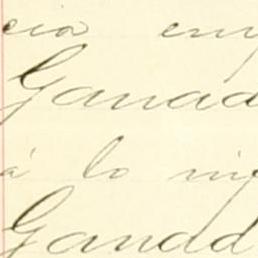 cia em
Ganad
á lo in
Ganad